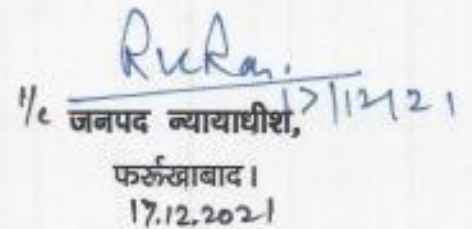 17/12/21
I/c जनपद न्यायाधीश,
फर्रूखाबाद।
17.12.2021